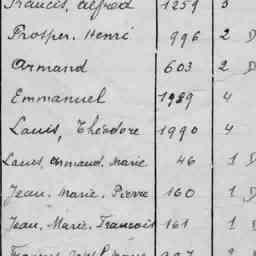 Francis, Alfred 1259 3
Prosper. Henri 996 2 D
Armand 603 2 D
Emmanuel 1989 4
Louis, Théodore 1990 4
Louis, Armand. Marie 46 1 D
Jean. Marie. Pierre 160 1 D
Jean. Marie. François 161 1 D